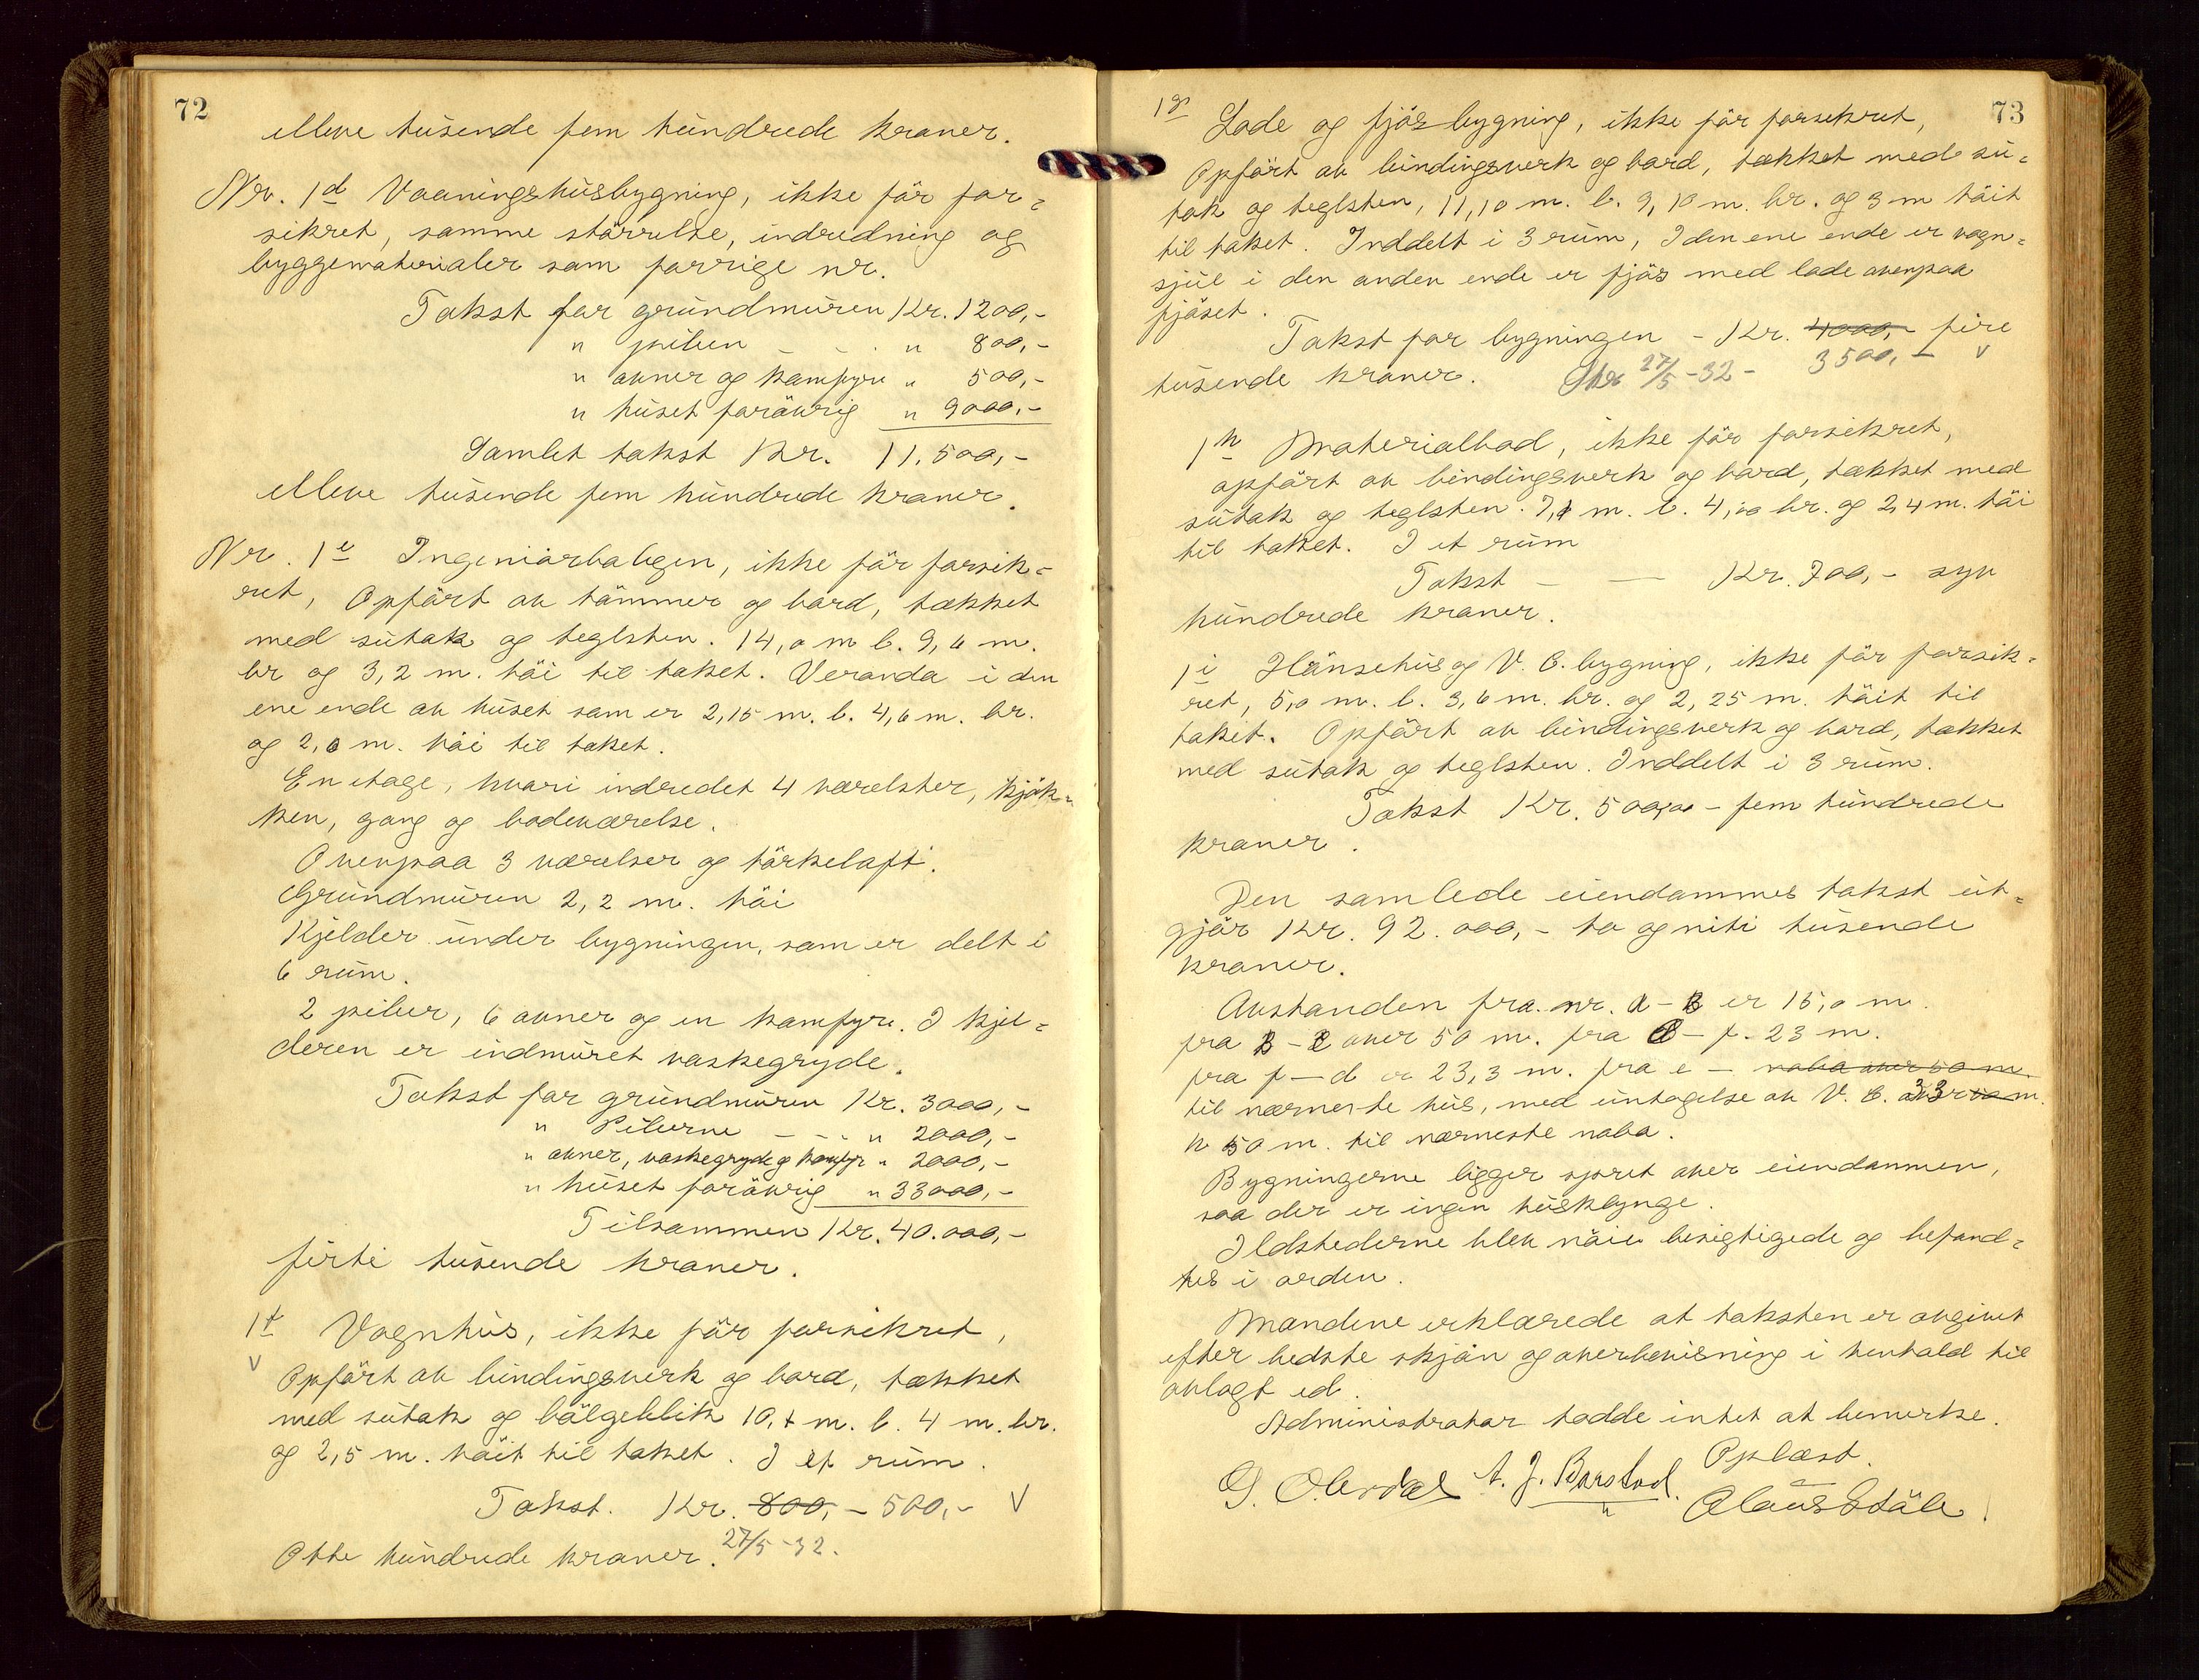 72
elleve tusende fem hundrede kroner.
Nr. 1d Vaaningshusbygning, ikke før for=
sikret, samme størrelse, indredning og
byggematerialer som forrige nr.
Takst for grundmuren Kr. 1200,-
" pipen - - . " 800,-
" ovner og komfyre " 500,-
" huset forøvrig " 9000,-
Samlet takst Kr. 11.500,-
elleve tusende fem hundrede kroner.
Nr. 1e Ingeniørboligen, ikke før forsik=
ret, Opført av tømmer og bord, tækket
med sutak og teglsten. 14,0 m l. 9,6 m.
br og 3,2 m. høi til taket. Veranda i den
ene ende av huset som er 2,15 m. l. 4,6 m. br.
og 2,6 m. høi til taket.
En etage, hvori indredet 4 værelster, kjøk=
ken, gang og badeværelse.
Ovenpaa 3 værelser og tørkeloft.
Grundmuren 2,2 m. høi
Kjelder under bygningen, som er delt i
6 rum.
2 piper, 6 ovner og en komfyre. I kjel=
deren er indmuret vaskegryde.
Takst for grundmuren Kr. 3000,-
" Piperne - - . " 2000,-
" ovner, vaskegryde og komfyr " 2000,-
" huset forøvrig " 33000,-
Tilsammen Kr. 40.000,-
førti tusende kroner.
1f Vognhus, ikke før forsikret,
V Opført av bindingsverk og bord, tækket
med sutak og bølgeblik 10,1 m. l. 4 m. br.
og 2,5 m. høit til taket. I et rum.
Takst. Kr. 800,- 500,- V
Otte hundrede kroner. 27/5-32.
73
1g Lade og fjøsbygning, ikke før forsikret,
Opført av bindingsverk og bord, tækket med su=
tak og teglsten, 11,10 m. l. 9,10 m. br. og 3 m høit
til taket. Inddelt i 3 rum, I den ene ende er vogn=
sjul i den anden ende er fjøs med lade ovenpaa
fjøset.
Takst for bygningen - Kr. 4000,- fire
tusende kroner. 27/5-32- 3500,- V
1h Materialbod, ikke før forsikret,
opført av bindingsverk og bord, tækket med
sutak og teglsten. 7,1 m. l. 4,10 br. og 2,4 m. høi
til taket. I et rum
Takst - - Kr. 700,- syv
hundrede kroner.
1i Hønsehus og V. C. bygning, ikke før forsik=
ret, 5,0 m. l. 3,6 m. br. og 2,25 m. høit til
taket. Opført av bindingsverk og bord, tækket
med sutak og teglsten. Inddelt i 3 rum.
Takst Kr. 500,00 - fem hundrede
kroner.
Den samlede eiendommes takst ut=
gjør Kr. 92.000,- to og niti tusende
kroner.
Avstanden fra nr. a - B er 15,0 m.
fra B - C over 50 m. fra C - f. 23 m.
fra f - d er 23,3 m. fra e - nabo over 50 m.
til nærmeste hus, med untagelse av V. C. 33 m.
h 50 m. til nærmeste nabo.
Bygningerne ligger spret over eiendommen,
saa der er ingen husklynge.
Ildstederne blev nøie besigtigede og befand=
tes i orden.
Mændene erklærede at taksten er avgivet
efter bedste skjøn og overbevisning i henhold til
avlagt ed.
Administrator hadde intet at bemerke.
Oplæst.
A. J. Barstad.